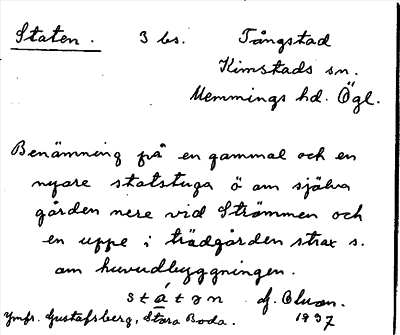 Staten. 3 bs. Tångstad
Kimstads sn.
Memmings hd. Ögl.
Benämning på en gammal och en
nyare statstuga ö om själva
gården nere vid Strömmen och
en uppe i trädgården strax s.
om huvudbyggningen.
stá̱tən
Jmfr. Gustafsberg, Stora Boda. 1937